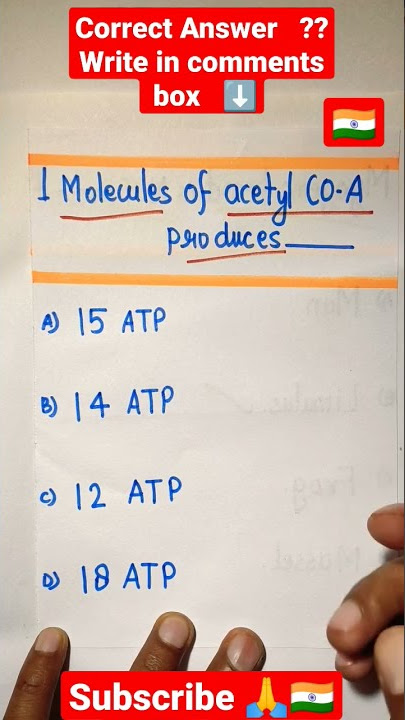 Correct Answer ??
Write in comments
box ⬇️
🇮🇳
1 Molecules of acetyl CO-A
produces____
A) 15 ATP
B) 14 ATP
C) 12 ATP
D) 18 ATP
Subscribe 🙏🇮🇳